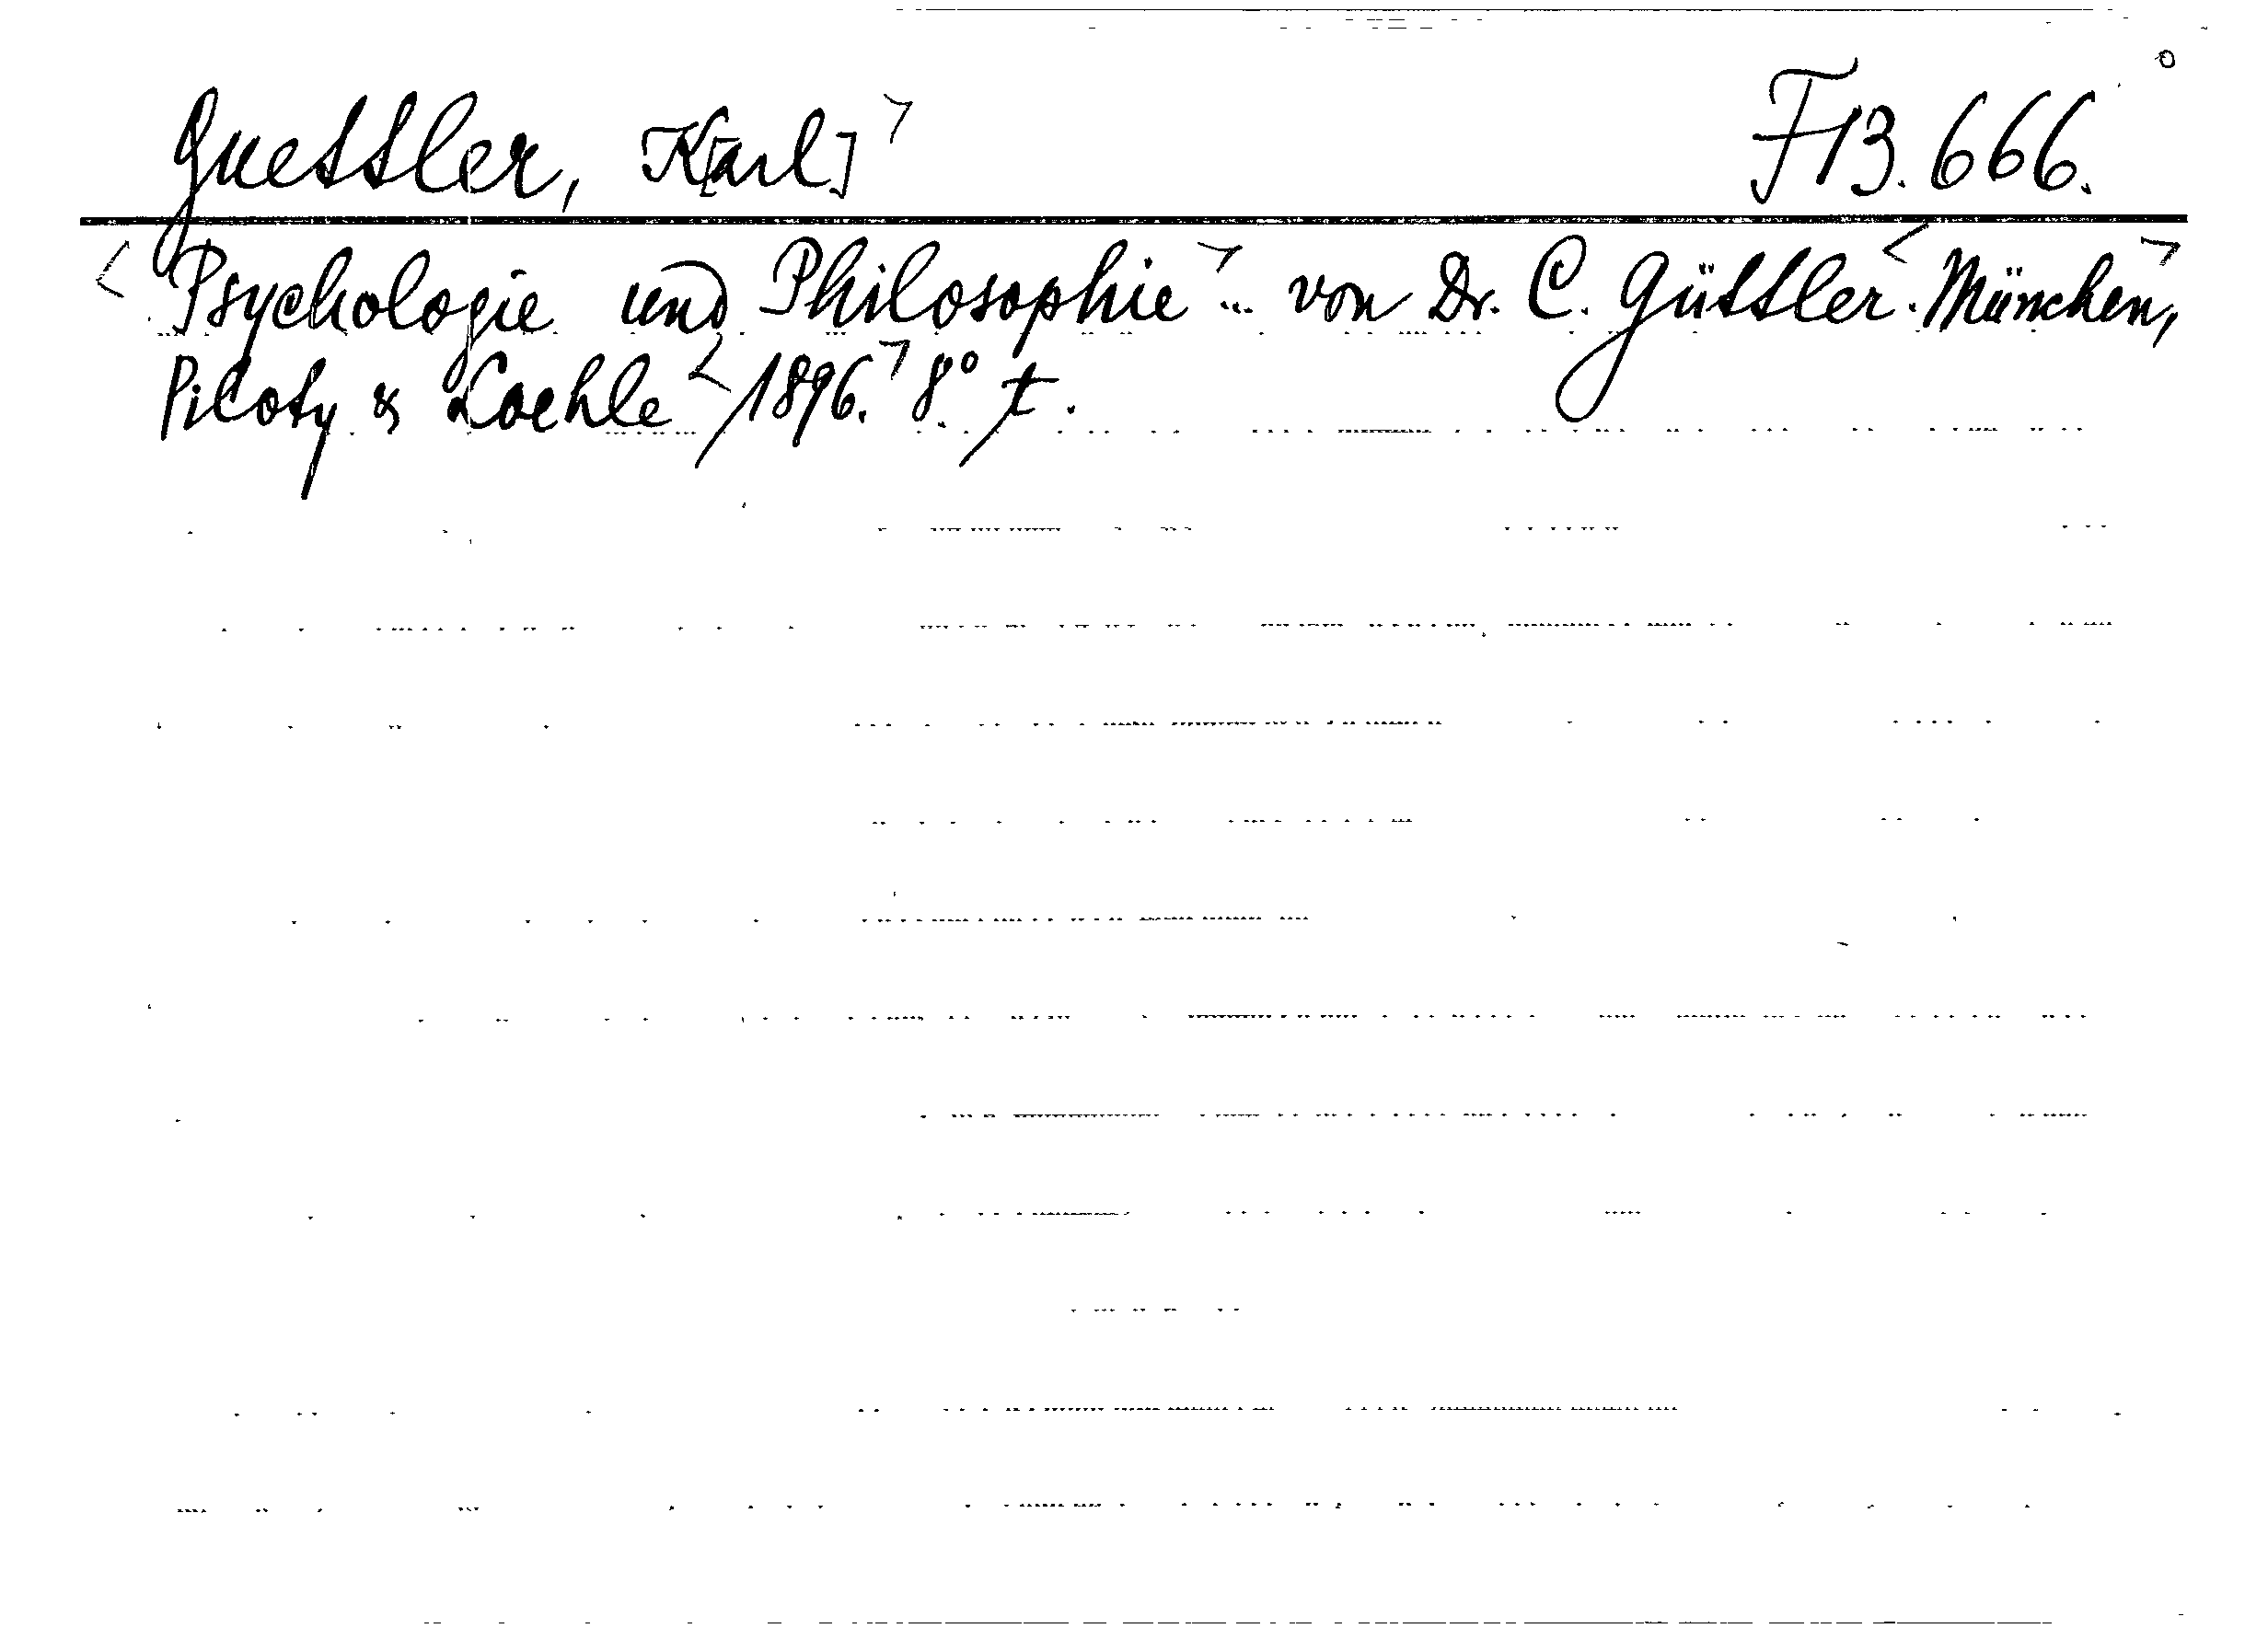 Guettler, K[arl] F13.666.
Psychologie und Philosophie ... von Dr. C. Güttler. München,
Piloty & Loehle 1896. 8° t.